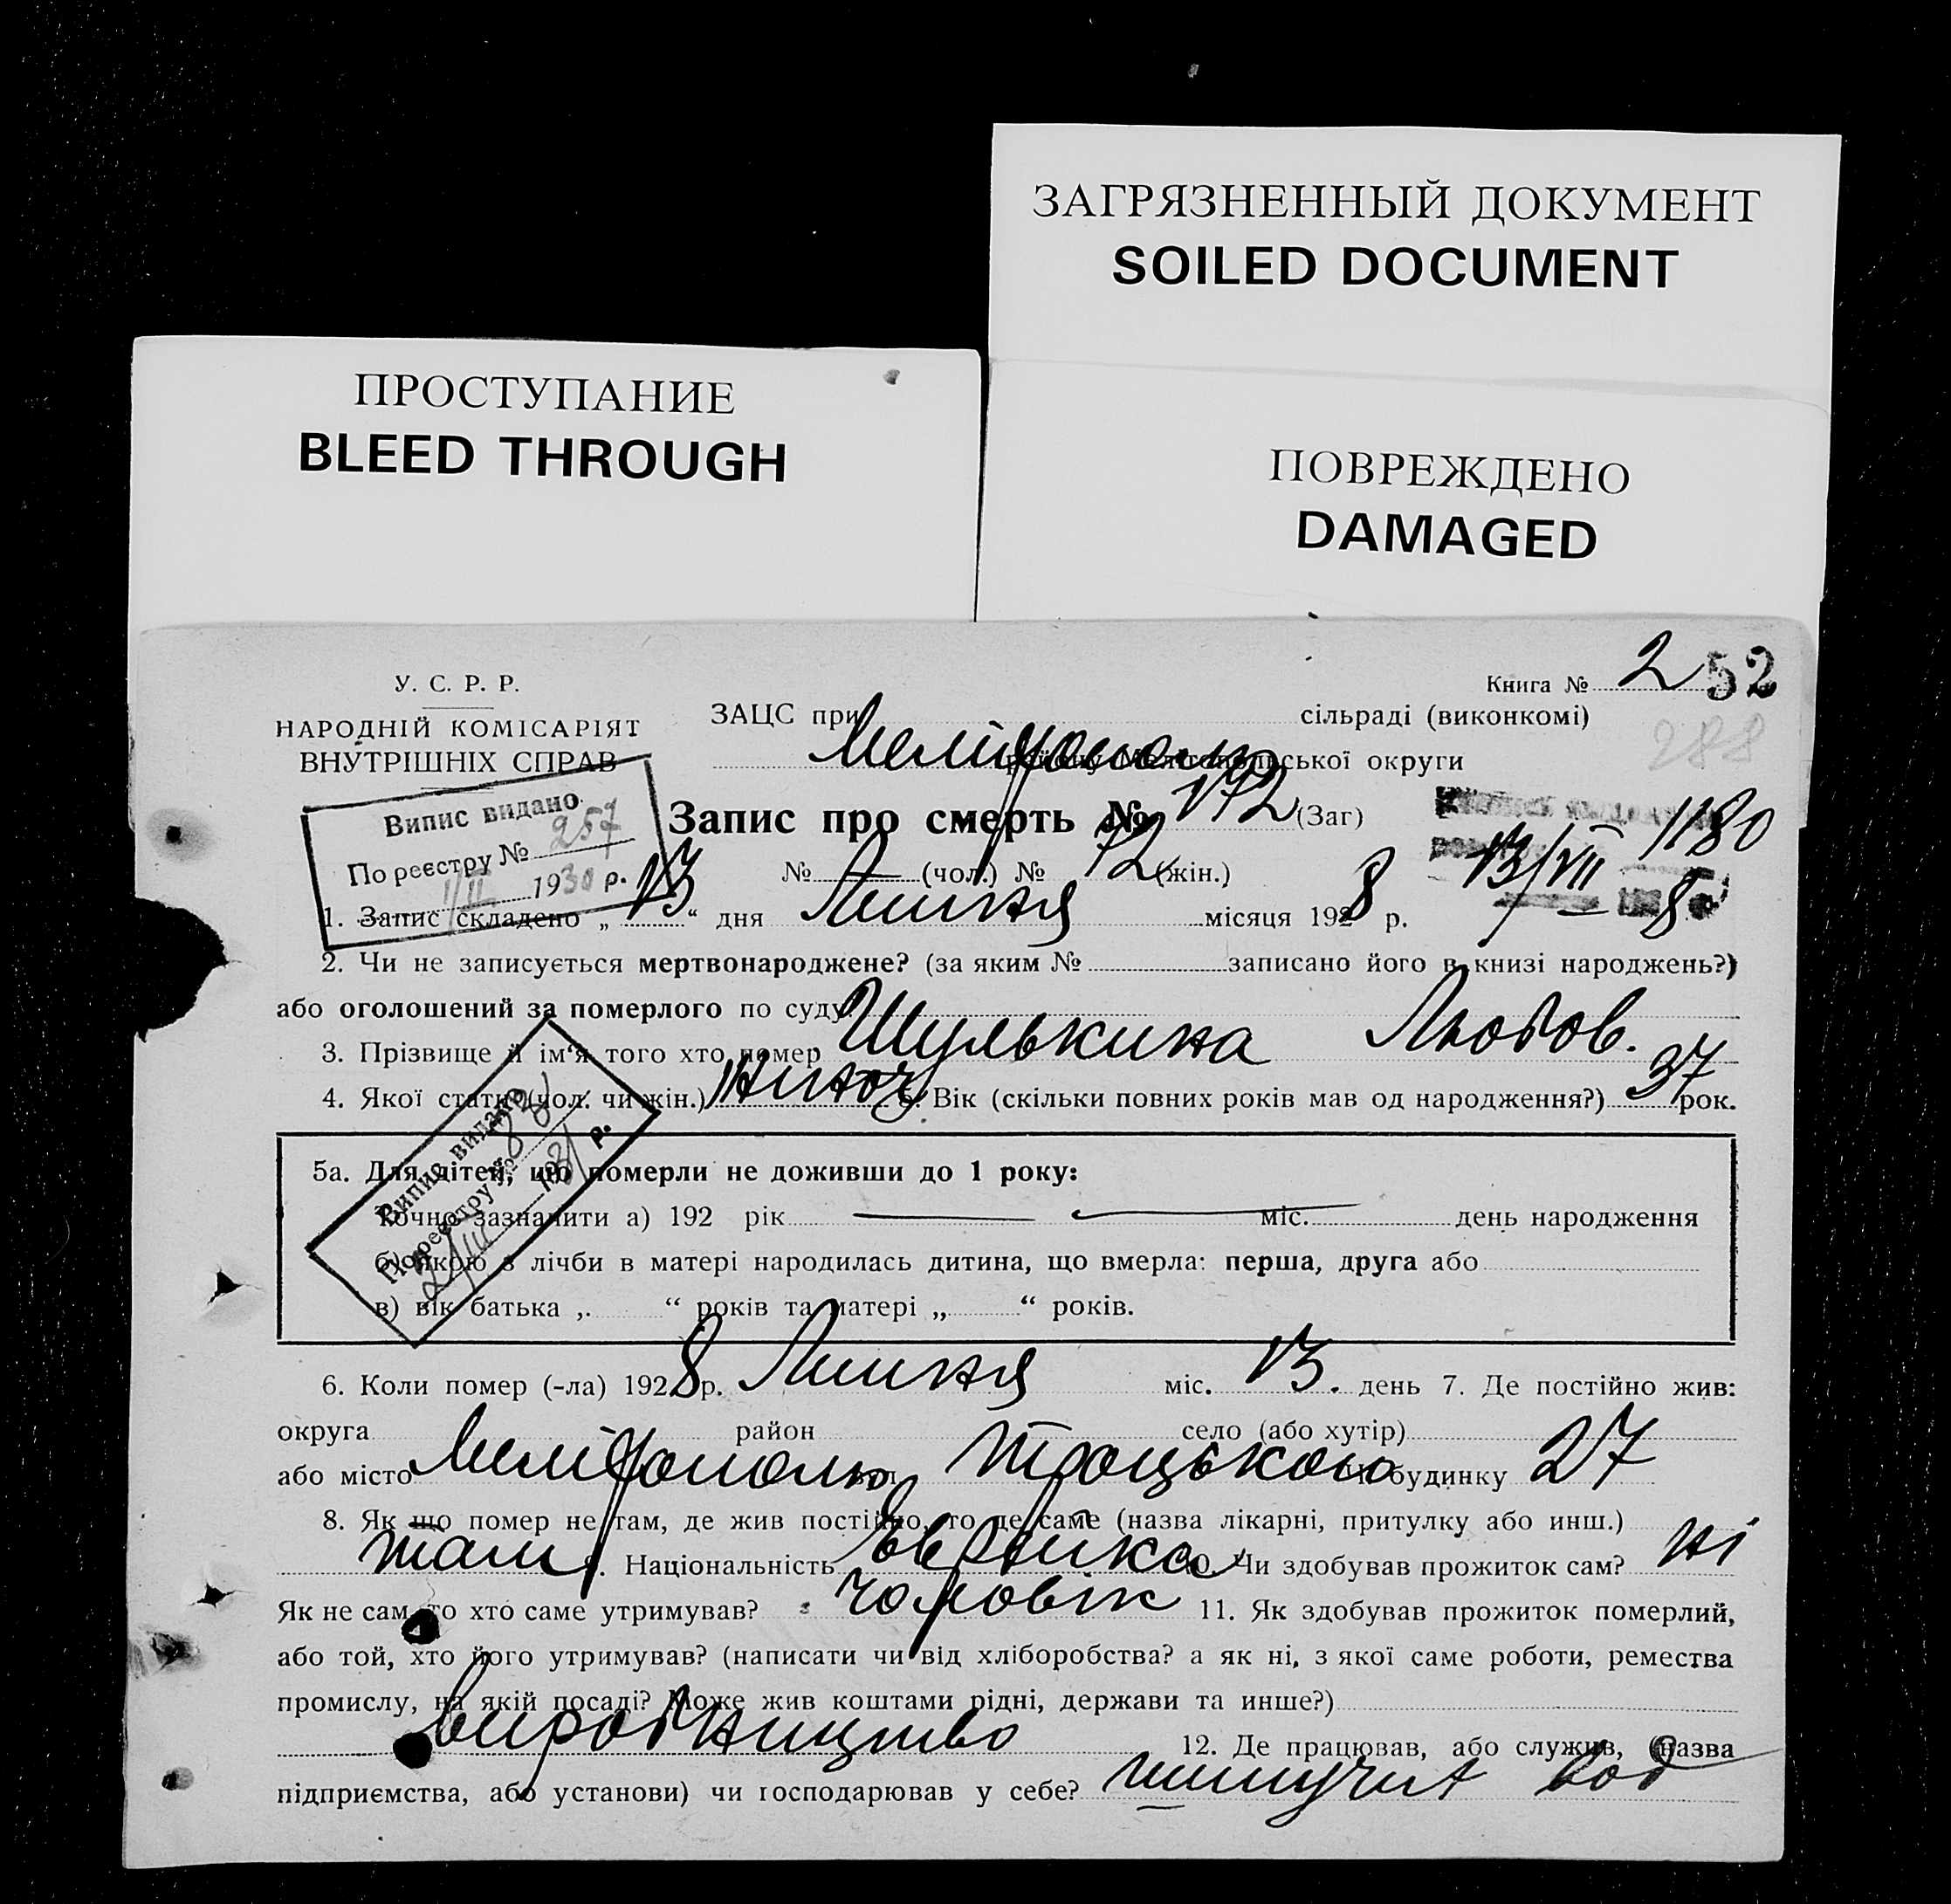 ЗАГРЯЗНЕННЫЙ ДОКУМЕНТ
SOILED DOCUMENT
ПРОСТУПАНИЕ
BLEED THROUGH
ПОВРЕЖДЕНО
DAMAGED
Книга № 2 52
288
У. С. Р. Р.
НАРОДНІЙ КОМІСАРІЯТ
ВНУТРІШНІХ СПРАВ
ЗАЦС при сільраді (виконкомі)
Мелітополь району Мелітопольської округи
Випис видано
По реєстру № 257
1/II 1930 р.
Запис про смерть № 172 (Заг)
№ — (чол.) № 72 (жін.)
1180
13/VII 8
1. Запис складено „ 13 “ дня Липня місяця 1928 р.
2. Чи не записується мертвонароджене? (за яким № записано його в книзі народжень?)
або оголошений за померлого по суду
3. Прізвище й ім'я того хто помер Шулькина Любов.
4. Якої статі (чол. чи жін.) Жіноч 5. Вік (скільки повних років мав од народження?) 37 рок.
Випис видано
По реєстру № 88
1931 р.
5а. Для дітей, що померли не доживши до 1 року:
Точно зазначити а) 192 рік — міс. — день народження
б) якою з лічби в матері народилась дитина, що вмерла: перша, друга або
в) вік батька „ “ років та матері „ “ років.
6. Коли помер (-ла) 1928 р. Липня міс. 13. день 7. Де постійно жив:
округа район село (або хутір)
або місто Мелітополь вул. Троцького № будинку 27
8. Як що помер не там, де жив постійно, то де саме (назва лікарні, притулку або инш.)
там 9. Національність Еврейка 10. Чи здобував прожиток сам? ні
Як не сам, то хто саме утримував? чоловік 11. Як здобував прожиток померлий,
або той, хто його утримував? (написати чи від хліборобства? а як ні, з якої саме роботи, ремества
промислу, на якій посаді? Може жив коштами рідні, держави та инше?)
виробництво 12. Де працював, або служив, (назва
підприємства, або установи) чи господарював у себе? шипучих вод